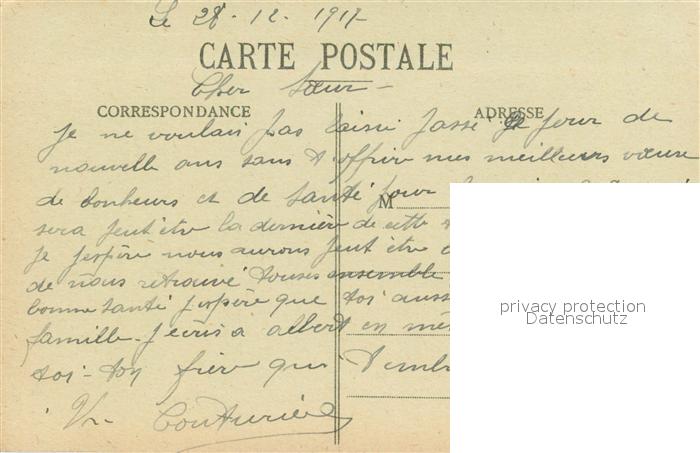 Le 28. 12. 1917
CARTE POSTALE
Cher Sœur -
CORRESPONDANCE
ADRESSE
Je ne voulais pas laissé passé le Jour de
nouvelle ans sans t'offrir mes meilleurs vœux
de bonheurs et de santé pour
M
sera peut être la dernière de cette
Je j'espère nous aurons peut être
de nous retrouvé touses ensemble
bonne santé j'espère que toi auss
famille. J'écris a albert en mê
toi - ton frère qui t'embr
Vr. Couturier
privacy protection
Datenschutz